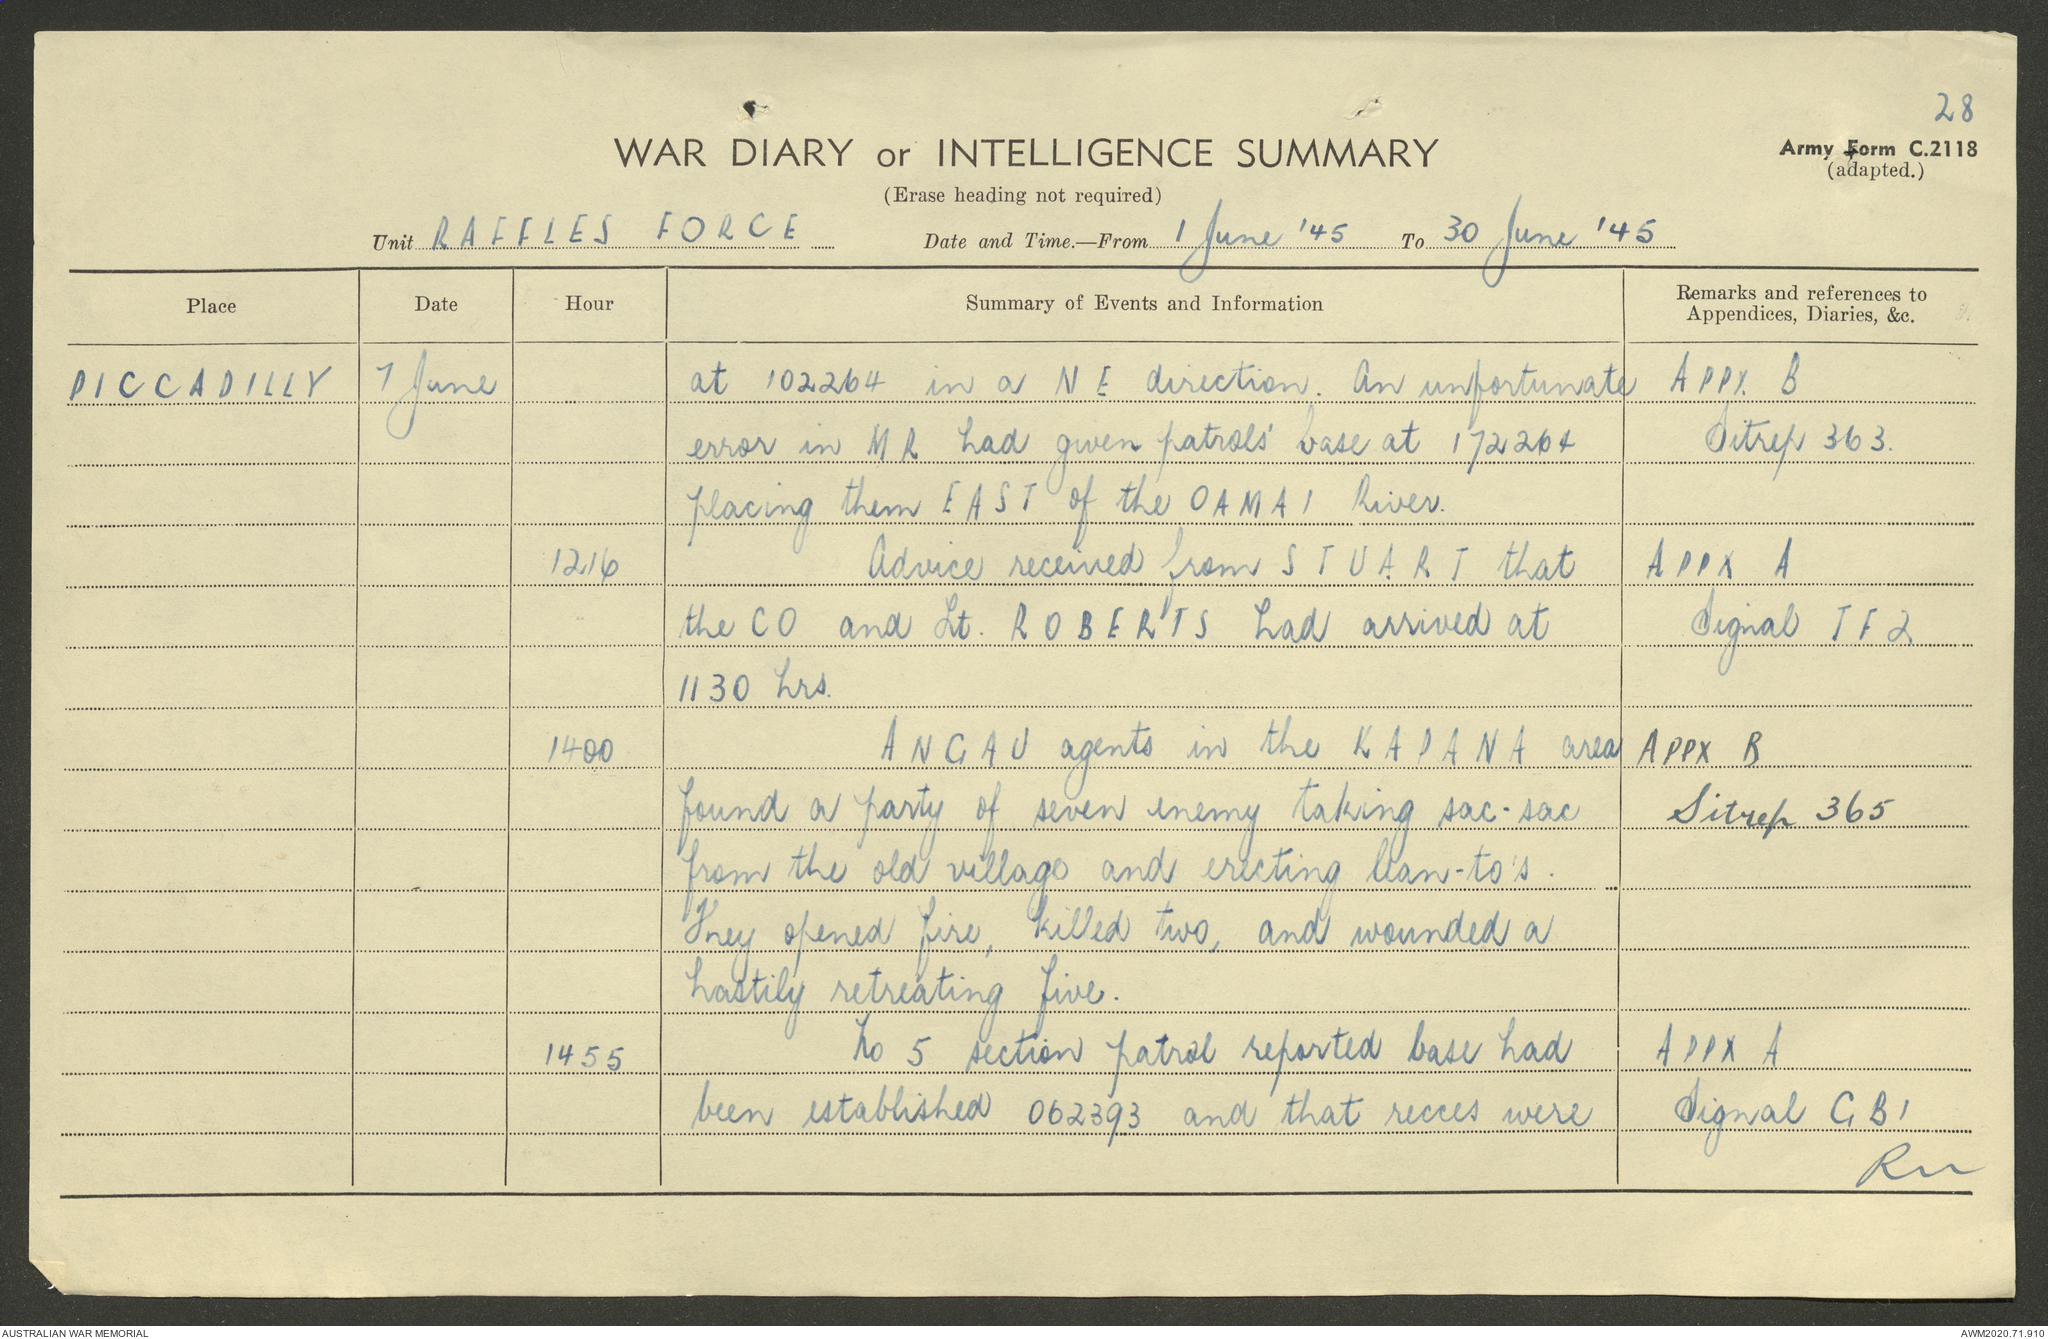 28
WAR DIARY or INTELLIGENCE SUMMARY
Army Form C.2118
(adapted.)
(Erase heading not required)
Unit RAFFLES FORCE Date and Time.—From 1 June '45 To 30 June '45
Place Date Hour Summary of Events and Information Remarks and references to Appendices, Diaries, &c.
PICCADILLY 7 June at 102264 in a NE direction. An unfortunate APPX. B
error in MR had given patrols' base at 172264 Sitrep 363.
placing them EAST of the OAMAI River.
1216 Advice received from STUART that APPX A
the CO and Lt. ROBERTS had arrived at Signal TF2
1130 hrs.
1400 ANGAU agents in the KAPANA area APPX B
found a party of seven enemy taking sac-sac Sitrep 365
from the old village and erecting lean-to's.
They opened fire, killed two, and wounded a
hastily retreating five.
1455 No 5 section patrol reported base had APPX A
been established 062393 and that recces were Signal GB1
AUSTRALIAN WAR MEMORIAL
AWM2020.71.910